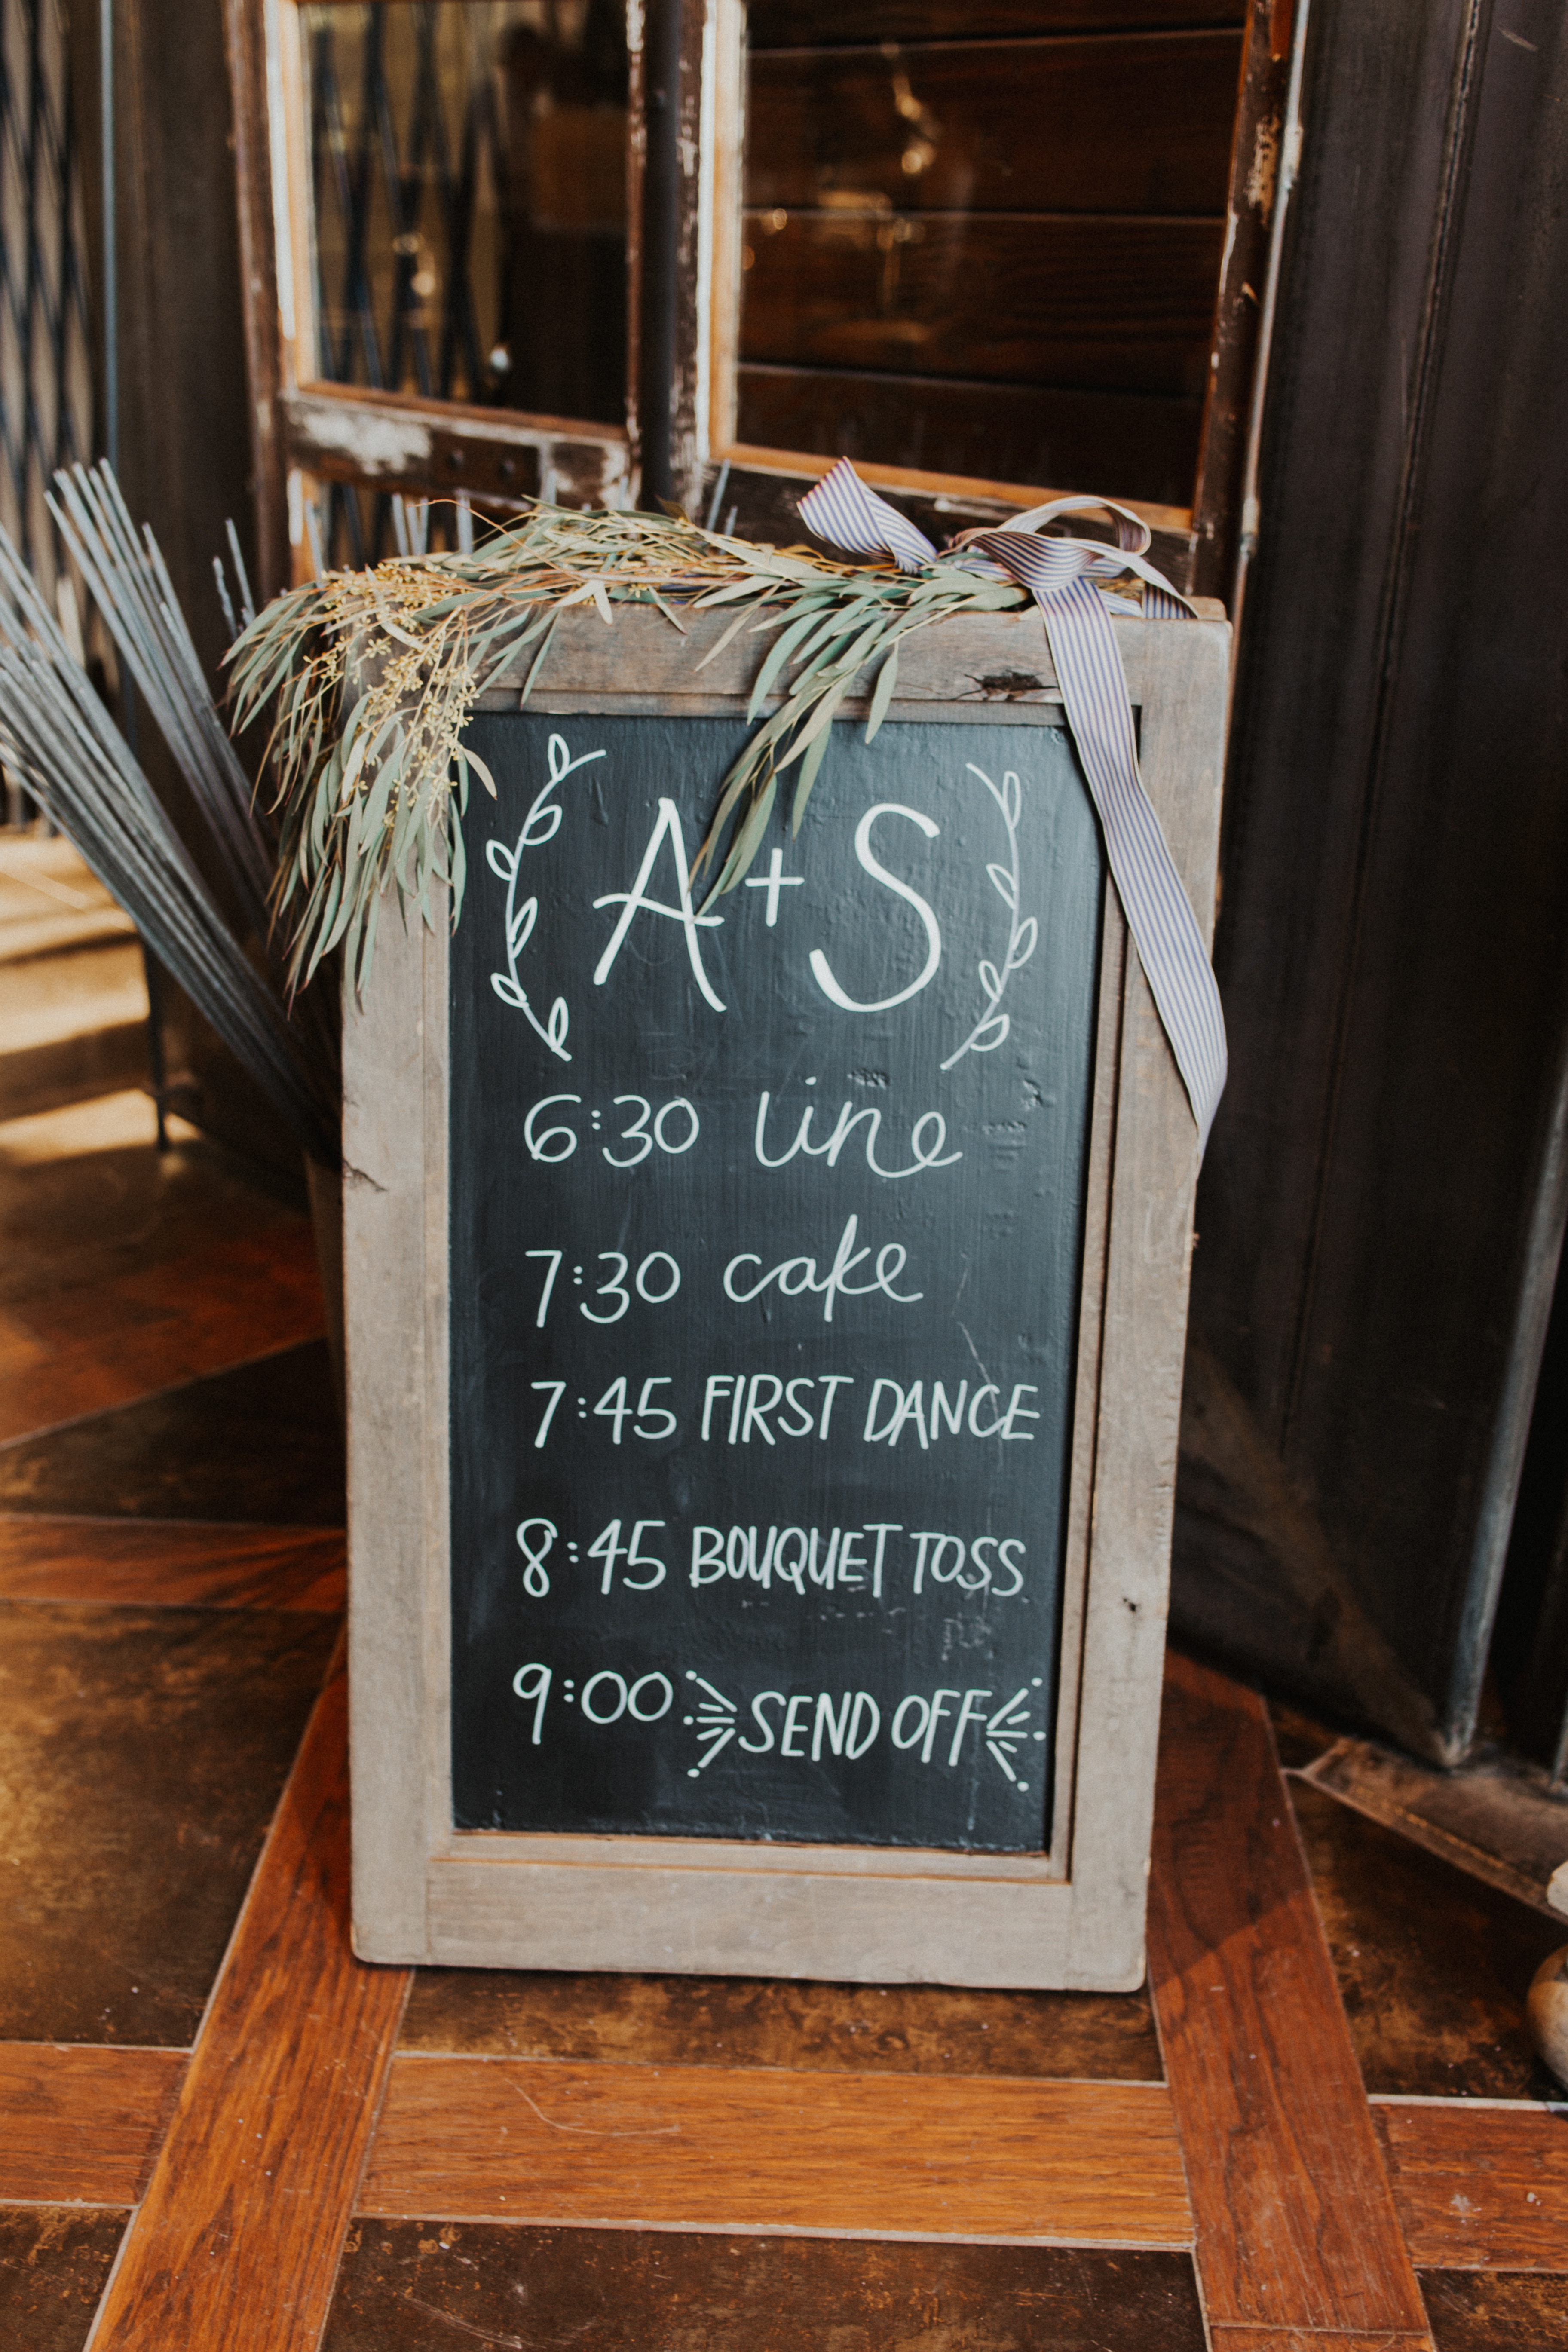 A + S
6:30 line
7:30 cake
7:45 FIRST DANCE
8:45 BOUQUET TOSS
9:00 SEND OFF